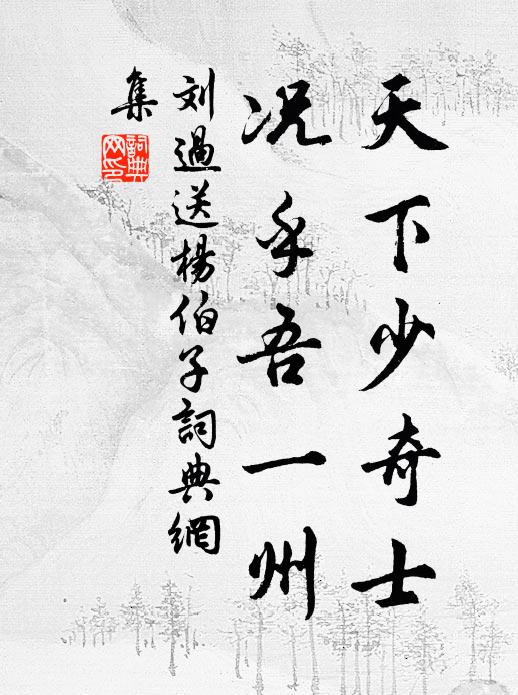 天下少奇士
况乎吾一州
刘過送楊伯子詞典網
集
詞典
网印